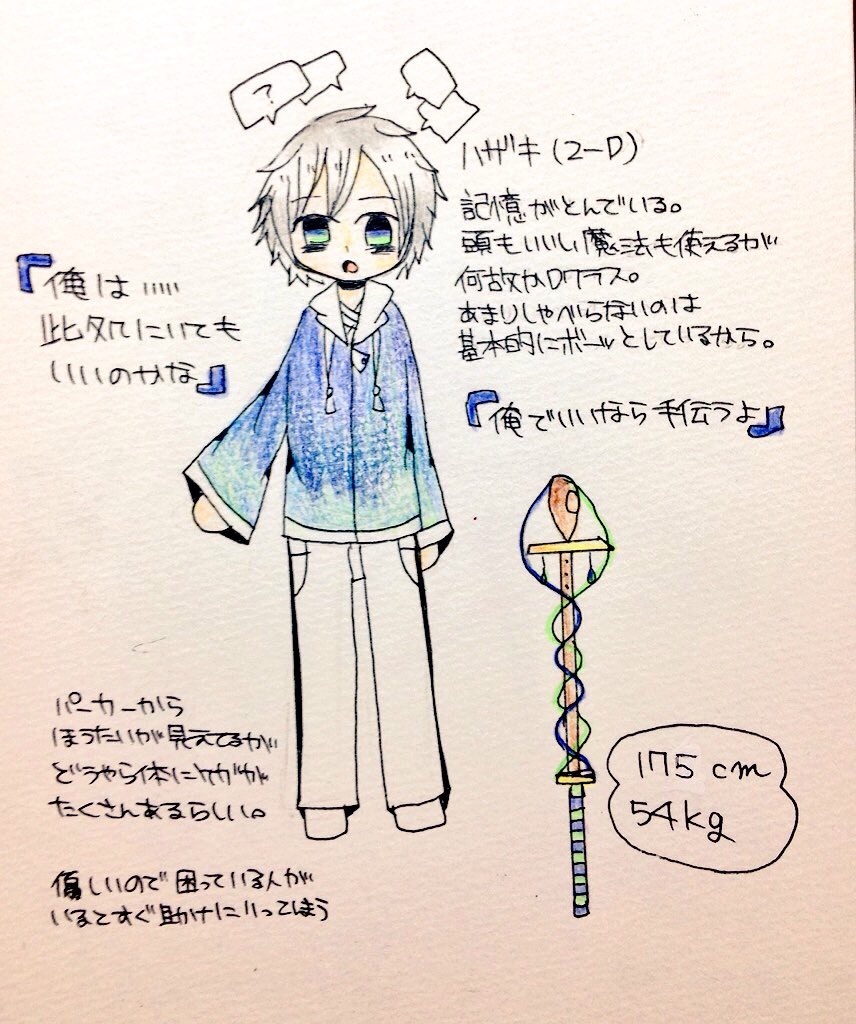 ?
ハザキ(2-D)
記憶がとんでいる。
頭もいいし魔法も使えるが
何故かDクラス。
あまりしゃべらないのは
基本的にボーッとしているから。
『俺は……
此処にいても
いいのかな』
『俺でいいなら手伝うよ』
パーカーから
ほうたいが見えてるが
どうやら体にケガが
たくさんあるらしい。
175cm
54kg
優しいので困っている人が
いるとすぐ助けにいってしまう